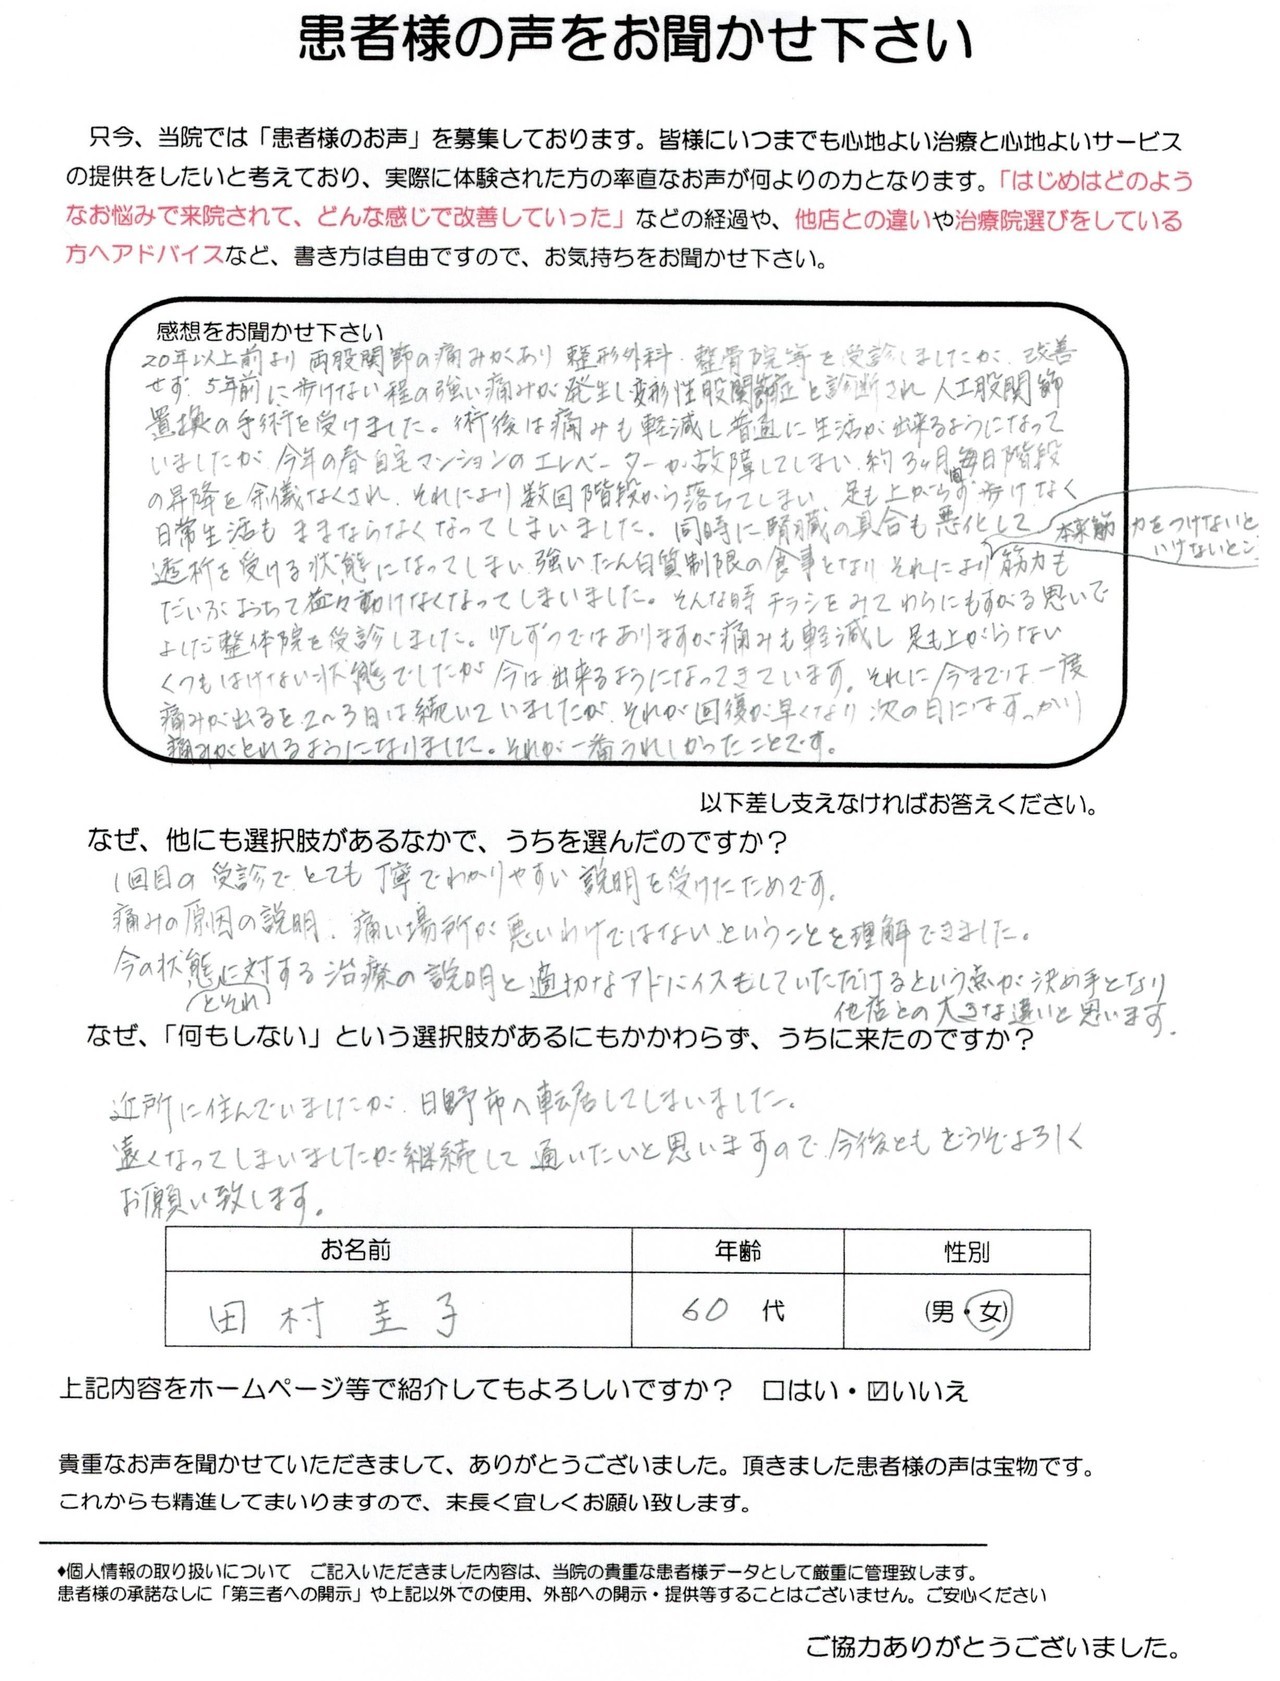 患者様の声をお聞かせ下さい
只今、当院では「患者様のお声」を募集しております。皆様にいつまでも心地よい治療と心地よいサービス
の提供をしたいと考えており、実際に体験された方の率直なお声が何よりの力となります。「はじめはどのよう
なお悩みで来院されて、どんな感じで改善していった」などの経過や、他店との違いや治療院選びをしている
方へアドバイスなど、書き方は自由ですので、お気持ちをお聞かせ下さい。
感想をお聞かせ下さい
20年以上前より 両股関節の痛みがあり 整形外科、整骨院等を受診しましたが、改善
せず、5年前に歩けない程の強い痛みが発生し変形性股関節症と診断され 人工股関節
置換の手術を受けました。術後は痛みも軽減し普通に生活が出来るようになって
いましたが、今年の春自宅マンションのエレベーターが故障してしまい、約3ヶ月間毎日階段
の昇降を余儀なくされ、それにより数回階段から落ちてしまい、足も上がらず、歩けなく
日常生活もままならなくなってしまいました。同時に腎臓の具合も悪化して
本来筋力をつけないと
いけないとこ
透析を受ける状態になってしまい、強いたん白質制限の食事となり それにより筋力も
だいぶおちて益々動けなくなってしまいました。そんな時チラシをみてわらにもすがる思いで
よしだ整体院を受診しました。少しずつではありますが痛みも軽減し 足も上がらない
くつもはけない状態でしたが 今は出来るようになってきています。それに今までは一度
痛みが出ると、2〜3日は続いていましたが、それが回復が早くなり 次の日にはすっかり
痛みがとれるようになりました。それが一番うれしかったことです。
以下差し支えなければお答えください。
なぜ、他にも選択肢があるなかで、うちを選んだのですか？
1回目の受診で、とても丁寧でわかりやすい説明を受けたためです。
痛みの原因の説明、痛い場所が悪いわけではないということを理解できました。
今の状態に対する治療の説明と適切なアドバイスもしていただけるという点が決め手となり
とそれ
他店との大きな違いと思います。
なぜ、「何もしない」という選択肢があるにもかかわらず、うちに来たのですか？
近所に住んでいましたが、日野市へ転居してしまいました。
遠くなってしまいましたが継続して通いたいと思いますので、今後ともどうぞよろしく
お願い致します。
お名前 年齢 性別
田村圭子 60 代 (男・女)
上記内容をホームページ等で紹介してもよろしいですか？ □はい・☑いいえ
貴重なお声を聞かせていただきまして、ありがとうございました。頂きました患者様の声は宝物です。
これからも精進してまいりますので、末長く宜しくお願い致します。
♦個人情報の取り扱いについて ご記入いただきました内容は、当院の貴重な患者様データとして厳重に管理致します。
患者様の承諾なしに「第三者への開示」や上記以外での使用、外部への開示・提供等することはございません。ご安心ください
ご協力ありがとうございました。